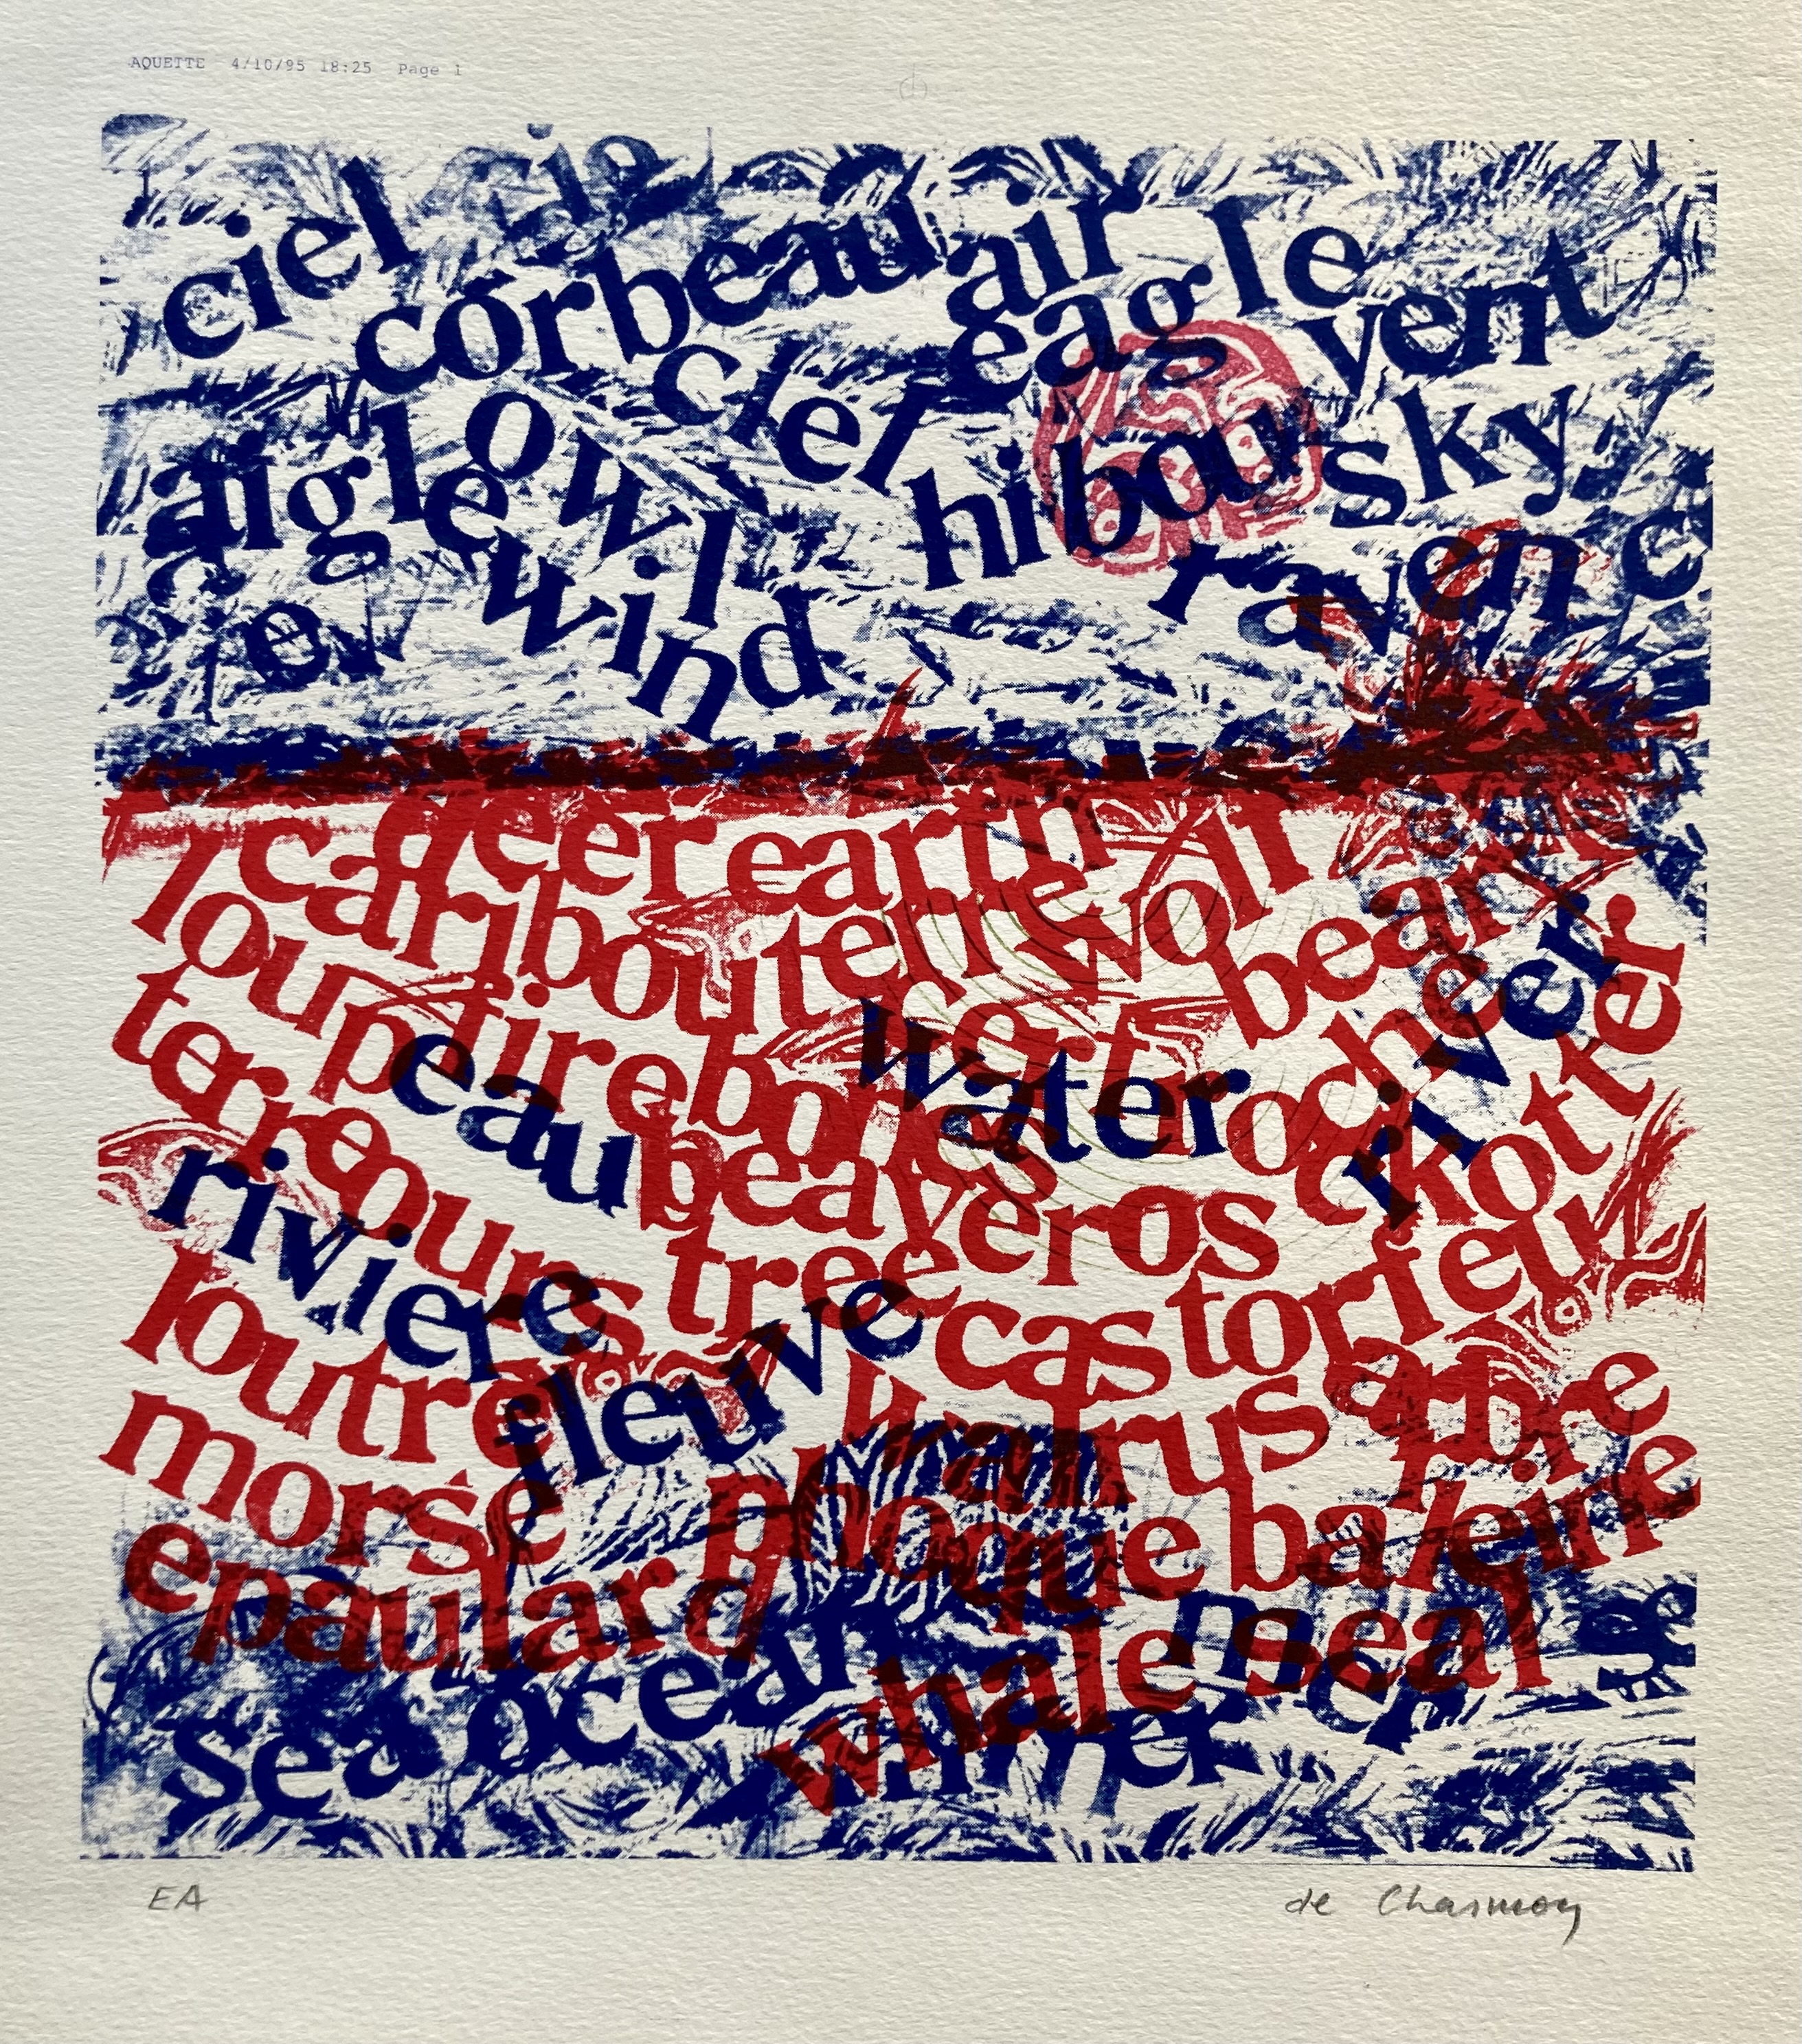 AQUETTE 4/10/95 18:25 Page 1
ciel cie
corbeau air eagle
ciel vent
aigle owl hibou sky
wind raven
deer earth
caribou terre wolf bear
loup fire vert rocher river
terre eau bones water rock otter
riviere ours beaver os
tree castor feu
loutre fleuve walrus arbre
morse phoque baleine
epaulard whale seal
sea ocean mer
mer
EA de Charmoy